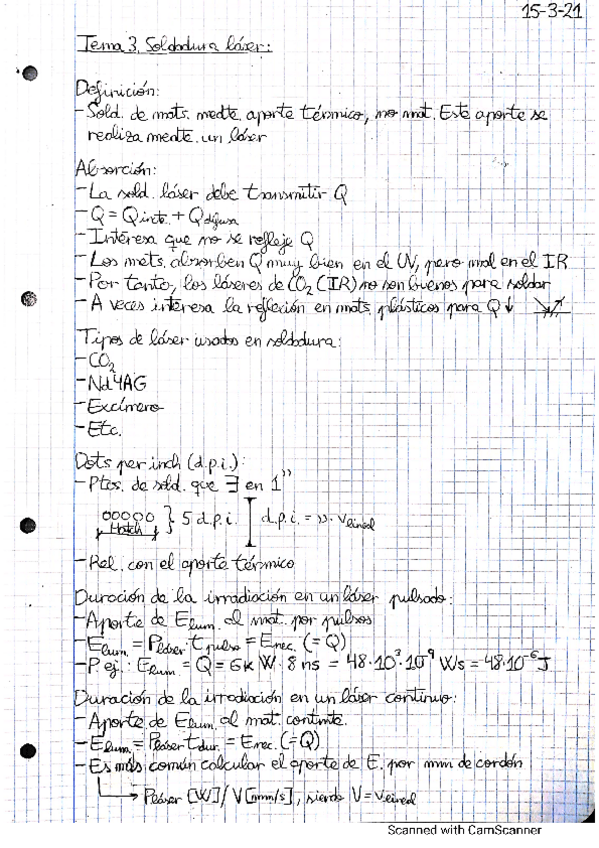 15-3-21
Tema 3. Soldadura láser:
Definición:
- Sold. de mats. medte. aporte térmico, no mat. Este aporte se
realiza mente. un láser
Absorción:
- La sold. láser debe transmitir Q
- Q = Q incte. + Q difusa
- Interesa que no se refleje Q
- Los mets. absorben Q muy bien en el UV, pero mal en el IR
- Por tanto, los láseres de CO2 (IR) no son buenos para soldar
- A veces interesa la reflexión en mats. plásticos para Q ↓
Tipos de láser usados en soldadura:
- CO2
- Nd YAG
- Excímero
- Etc.
Dots per inch (d.p.i.):
- Ptos. de sold. que ∃ en 1"
00000 } 5 d.p.i. d.p.i. = ν · Vlineal
Hatch
- Rel. con el aporte térmico
Duración de la irradiación en un láser pulsado:
- Aporte de Elum. al mat. por pulsos
- Elum. = Pláser · t pulso = Enec. (= Q)
- P. ej.: Elum. = Q = 6k W · 8 ns = 48·10³·10⁻⁹ Ws = 48·10⁻⁶ J
Duración de la irradiación en un láser continuo:
- Aporte de Elum. al mat. contnte.
- Elum. = Pláser t dur. = Enec. (= Q)
- Es más común calcular el aporte de E. por mm de cordón
→ Pláser [W] / V [mm/s], siendo V = Vlineal
Scanned with CamScanner